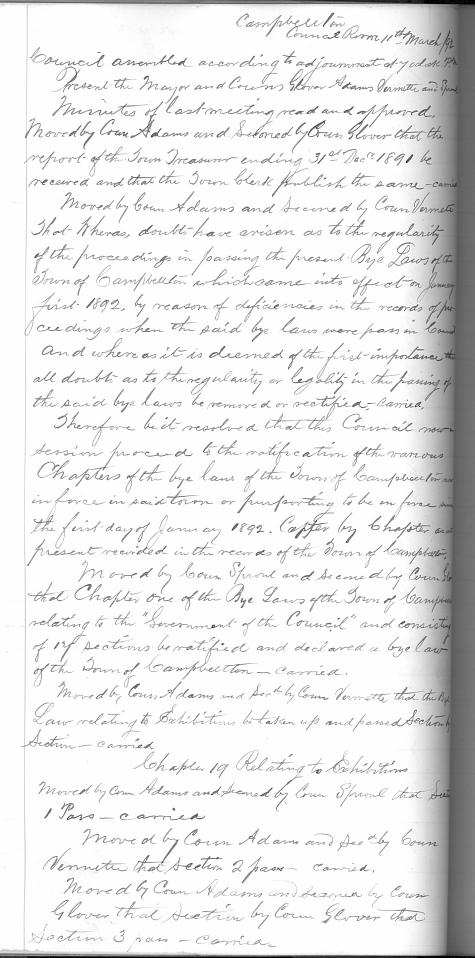 Campbellton
Council Room 11th March/92
Council assembled according to adjournment at 7 oclock P.M.
Present the Mayor and Couns Glover Adams Vermette and Sproul
Minutes of last meeting read and approved.
Moved by Coun Adams and Seconed by Coun Glover that the
report of the Town Treasurer ending 31st Decr 1891 be
received and that the Town Clerk publish the same – carried
Moved by Coun Adams and Seconed by Coun Vermette
That Wheras, doubts have arisen as to the regularity
of the proceedings in passing the present Bye Laws of the
Town of Campbellton which came into effect on January
first 1892, by reason of deficiencies in the records of pro
ceedings when the said bye laws were pass in Council
And where as it is deemed of the first importance that
all doubts as to the regularity or legality in the passing of
the said bye laws be removed or rectified – carried.
Therefore be it resolved that this Council now in
session proceed to the ratification of the various
Chapters of the bye laws of the Town of Campbellton
in force in said town or purporting to be in force since
the first day of January 1892. Capter by Chapter as
present recorded in the records of the Town of Campbellton.
Moved by Coun Sproul and seconed by Coun Glover
that Chapter one of the Bye Laws of the Town of Campbell
relating to the "Government of the Council" and consisting
of 17 sections be ratified and declared a bye law
of the Town of Campbellton – carried.
Moved by Coun Adams and Secd by Coun Vermette that the Bye
Law relating to Exhibitions be taken up and passed Section by
Section – carried
Chapter 19 Relating to Exhibitions
Moved by Coun Adams and Seconed by Coun Sproul that Section
1 Pass – carried
Moved by Coun Adams and Secd by Coun
Vermette that section 2 pass – carried.
Moved by Coun Adams and Seconed by Coun
Glover that section by Coun Glover that
Section 3 pass – carried.